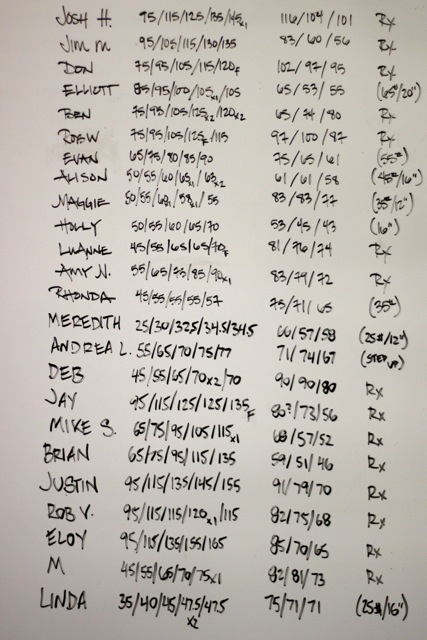 JOSH H. 95/115/125/135/145x1 116/104/101 Rx
JIM M 95/105/115/130/135 83/60/56 Rx
DON 75/95/105/115/120F 102/97/95 Rx
ELLIOTT 85/95/100/105x1/105 65/53/55 (65#/20")
BEN 75/95/105/125x2/120x2 65/74/80 Rx
ROB W 75/95/105/125F/115 97/100/87 Rx
EVAN 65/75/80/85/90 75/65/61 (55#)
ALISON 50/55/60/65x1/63x2 61/61/58 (45#/16")
MAGGIE 50/55/60x1/58x1/55 83/83/77 (35#/12")
HOLLY 50/55/60/65/70 53/45/43 (16")
LUANNE 45/55/65/65/70F 81/76/74 Rx
AMY N. 55/65/73/85/90x1 83/79/72 Rx
RHONDA 45/55/55/55/57 75/71/65 (35#)
MEREDITH 25/30/32.5/34.5/34.5 66/57/58 (25#/12")
ANDREA L. 55/65/70/75/77 71/74/67 (STEP UP)
DEB 45/55/65/70x2/70 90/90/80 Rx
JAY 95/115/125/125/135F 80?/73/56 Rx
MIKE S. 65/75/95/105/115x1 68/57/52 Rx
BRIAN 65/75/95/115/135 59/51/46 Rx
JUSTIN 95/115/135/145/155 91/79/70 Rx
ROB V. 95/115/115/120x1/115 82/75/68 Rx
ELOY 95/115/135/155/165 85/70/65 Rx
M 45/55/65/70/75x1 82/81/73 Rx
LINDA 35/40/45/47.5/47.5 75/71/71 (25#/16")
x2